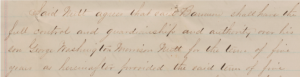 Said Nutt agrees that said Bowmer shall have the
full control and guardianship and authority over his
son George Washington Harrison Nutt for the term of five
years as hereinafter provided the said term of five